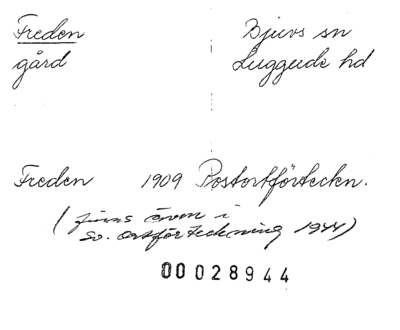 Freden
gård
Bjuvs sn
Luggude hd
Freden 1909 Postortförteckn.
(finns även i
Sv. ortförteckning 1944)
00028944